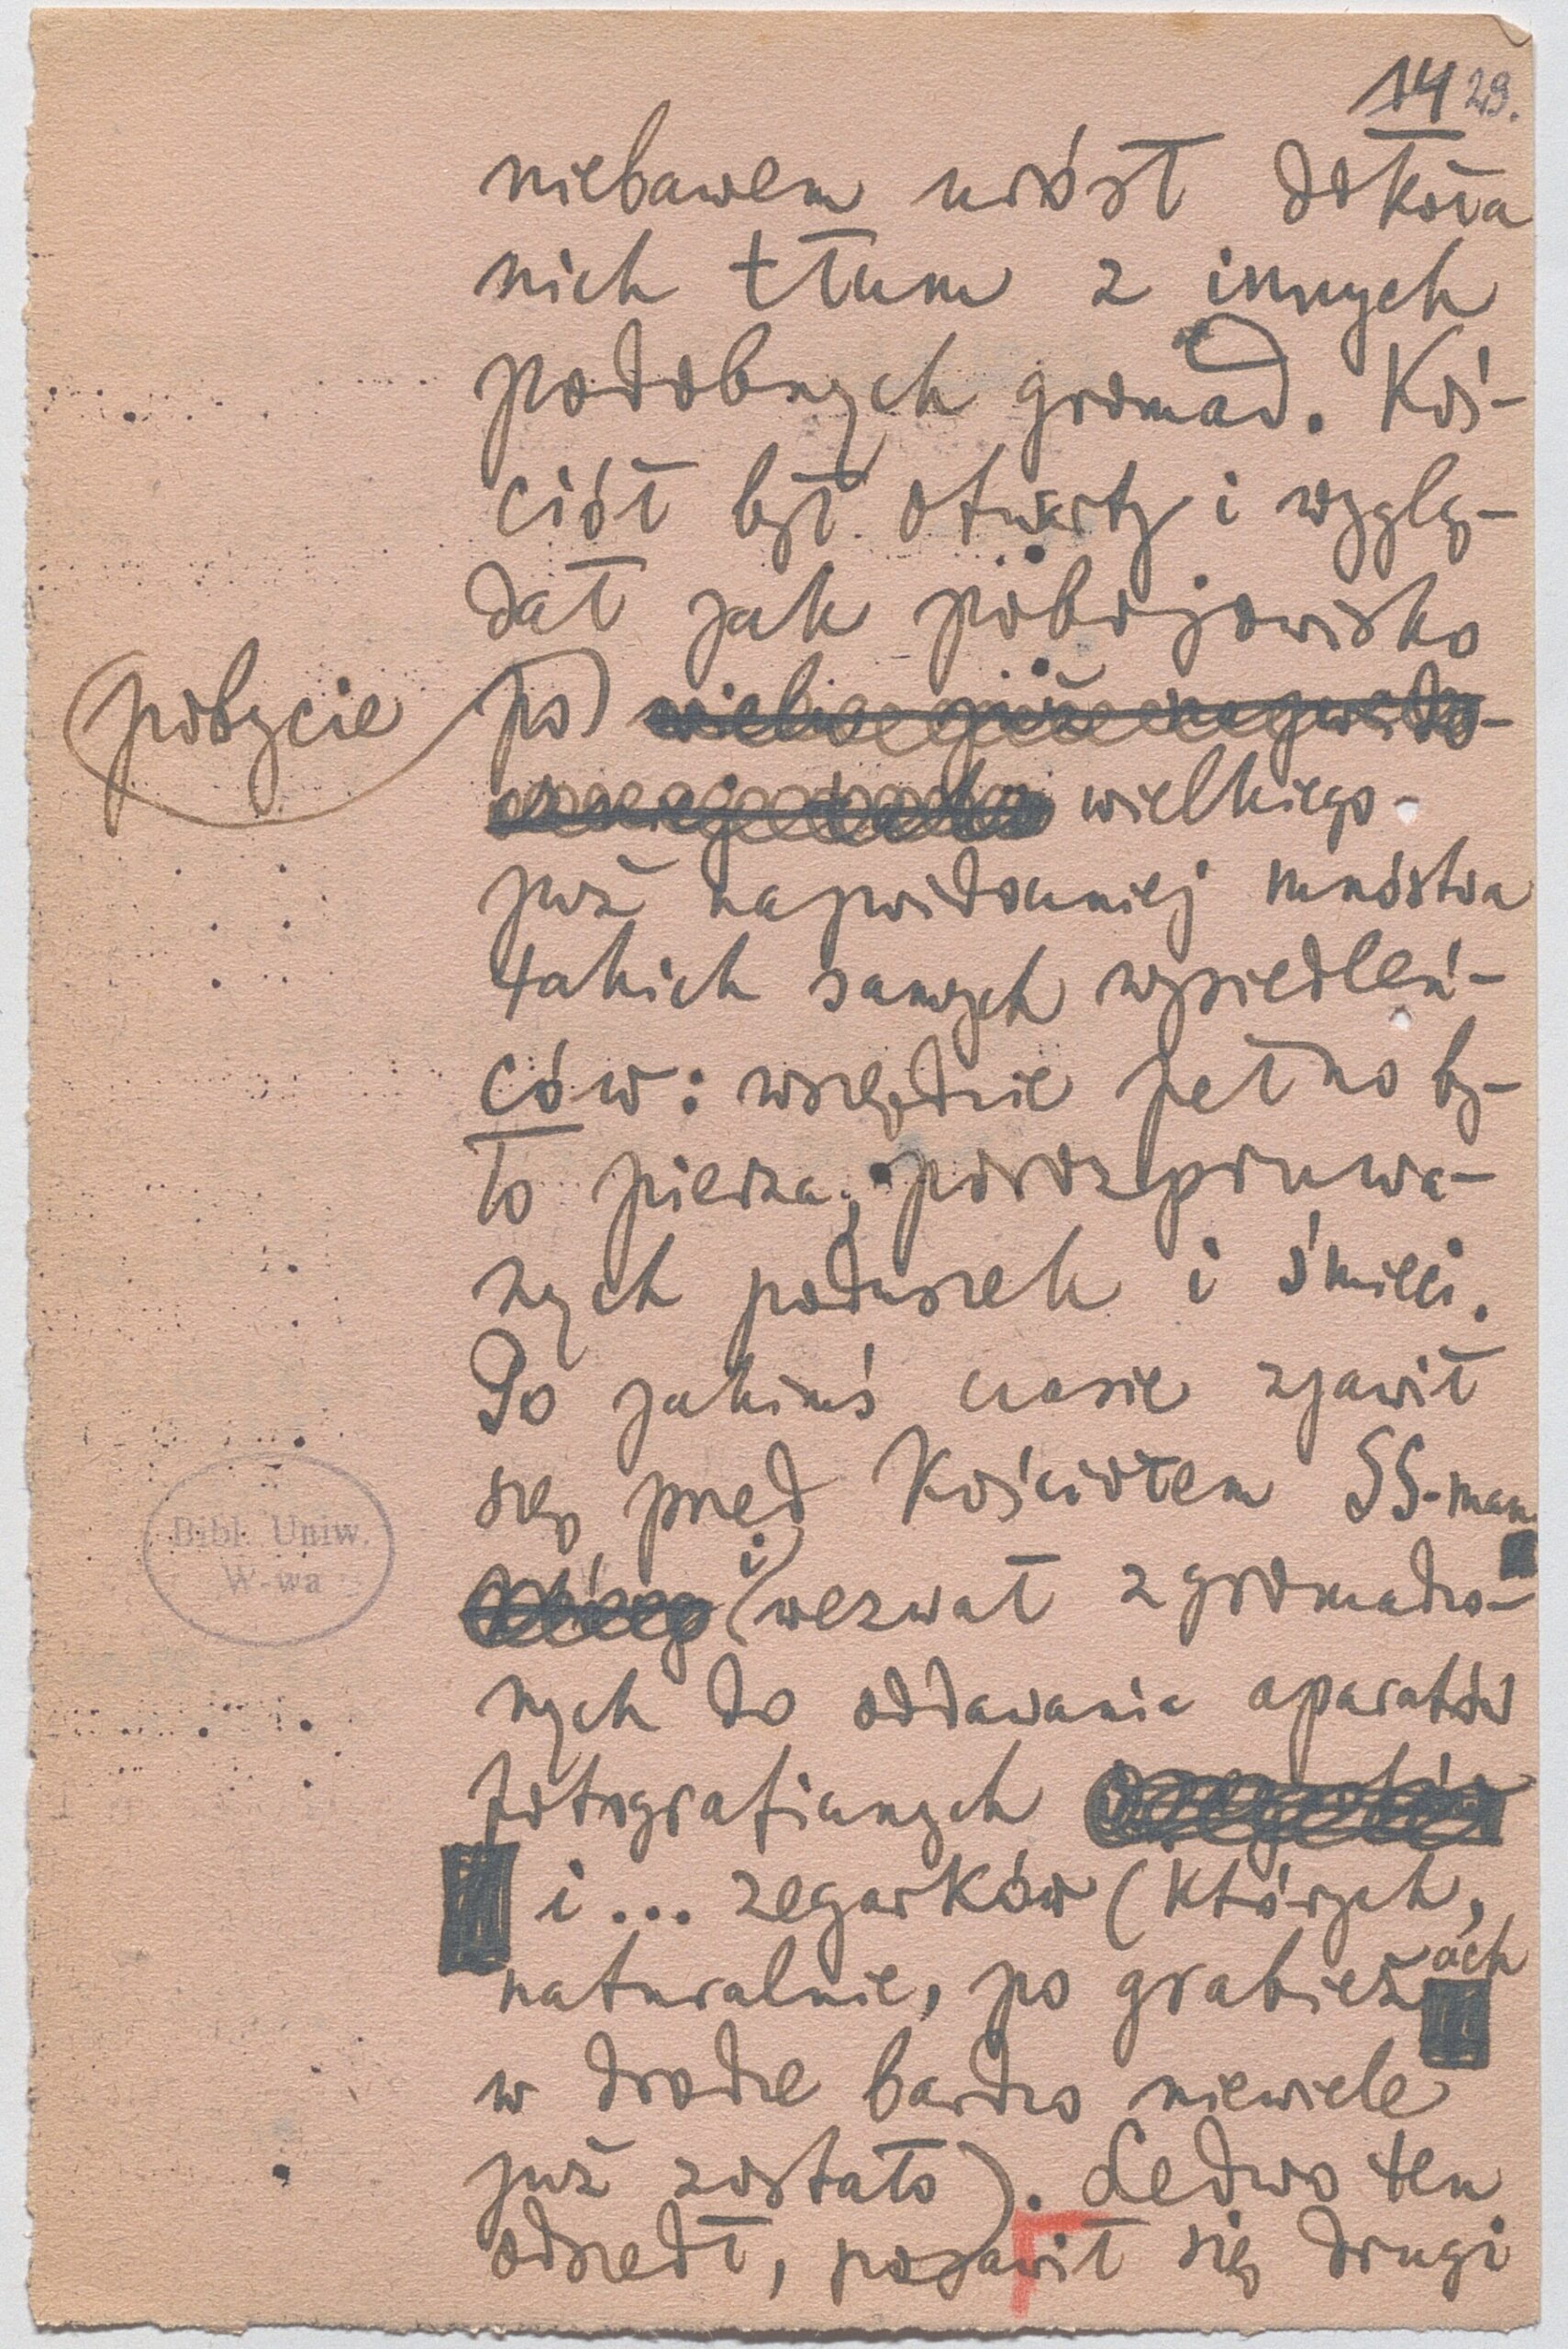 14 29.
niebawem urósł dokoła
nich tłum z innych
podobnych gromad. Koś-
ciół był otwarty i wyglą-
dał jak pobojowisko
pobycie po
wielkiego
już najwidoczniej mnóstwa
takich samych wysiedleń-
ców: wszędzie pełno by-
ło pierza, porozpruwa-
nych poduszek i śmieci.
Po jakimś czasie zjawił
się przed kościołem SS-man
i wezwał zgromadzo-
nych do oddawania aparatów
fotograficznych
i... zegarków (których,
naturalnie, po grabieżach
w drodze bardzo niewiele
już zostało). Ledwo ten
odszedł, pojawił się drugi
Bibl. Uniw.
W-wa